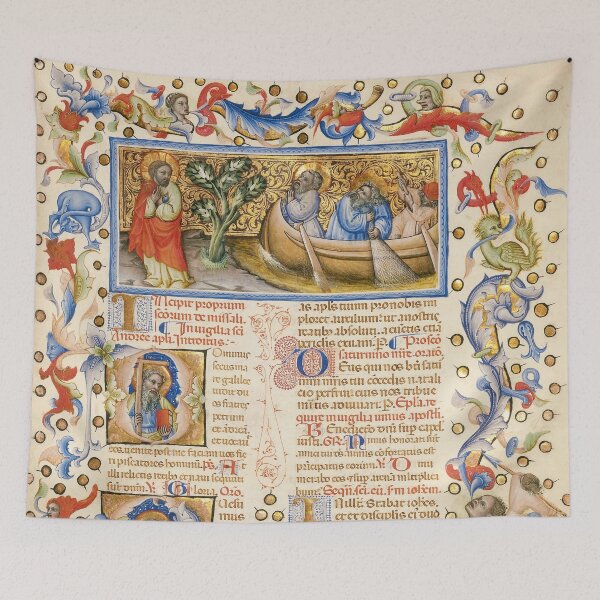 Incipit proprium
scorum de missali.
In uigilia sci
Andree apli Introitus:-
Dominus
secus ma
re galilee
uidit du
os fratres
petrum
et
et uocaui
eos uenite post me faciam uos fie
ri piscatores hominu. ps. At
illi relictis retibus et naui secuti
sunt dnm. V. Gloria. Oro.
Quesu
mus
as apls tuum pro nobis im
ploret auxilium: ut a nostris
reatibus absoluti. a cunctis etia
periclis exuam. P. Pro sco
saturnino mre. orato.
Deus qui nos
mris tui concedis natali
cio perfrui: eius nos tribue
mitis adiuuari. P. Epla re
quire in uigilia unius apostli.
Benedictio dni sup caput
iusti. GR. Nimis honorati sut
amici tui deus nimis confortatus est
pricipatus eorum. V. Dinu
merabo eos et super arena multiplica
bunt. Sequn. sci. eu. s. iohem.
In illo. Stabat iohes.
et ex discipulis ei duo